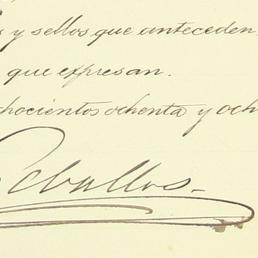 y sellos que anteceden
que expresan.
ochocientos ochenta y och
Ceballos.